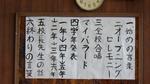 一 始めの言葉
二 オープニング
セレモニー
三 全校合唱
マイバラード
四 学年発表
一年→四年→五年
→二年→三年→六年
五 校長先生の話
六 終わりの言葉